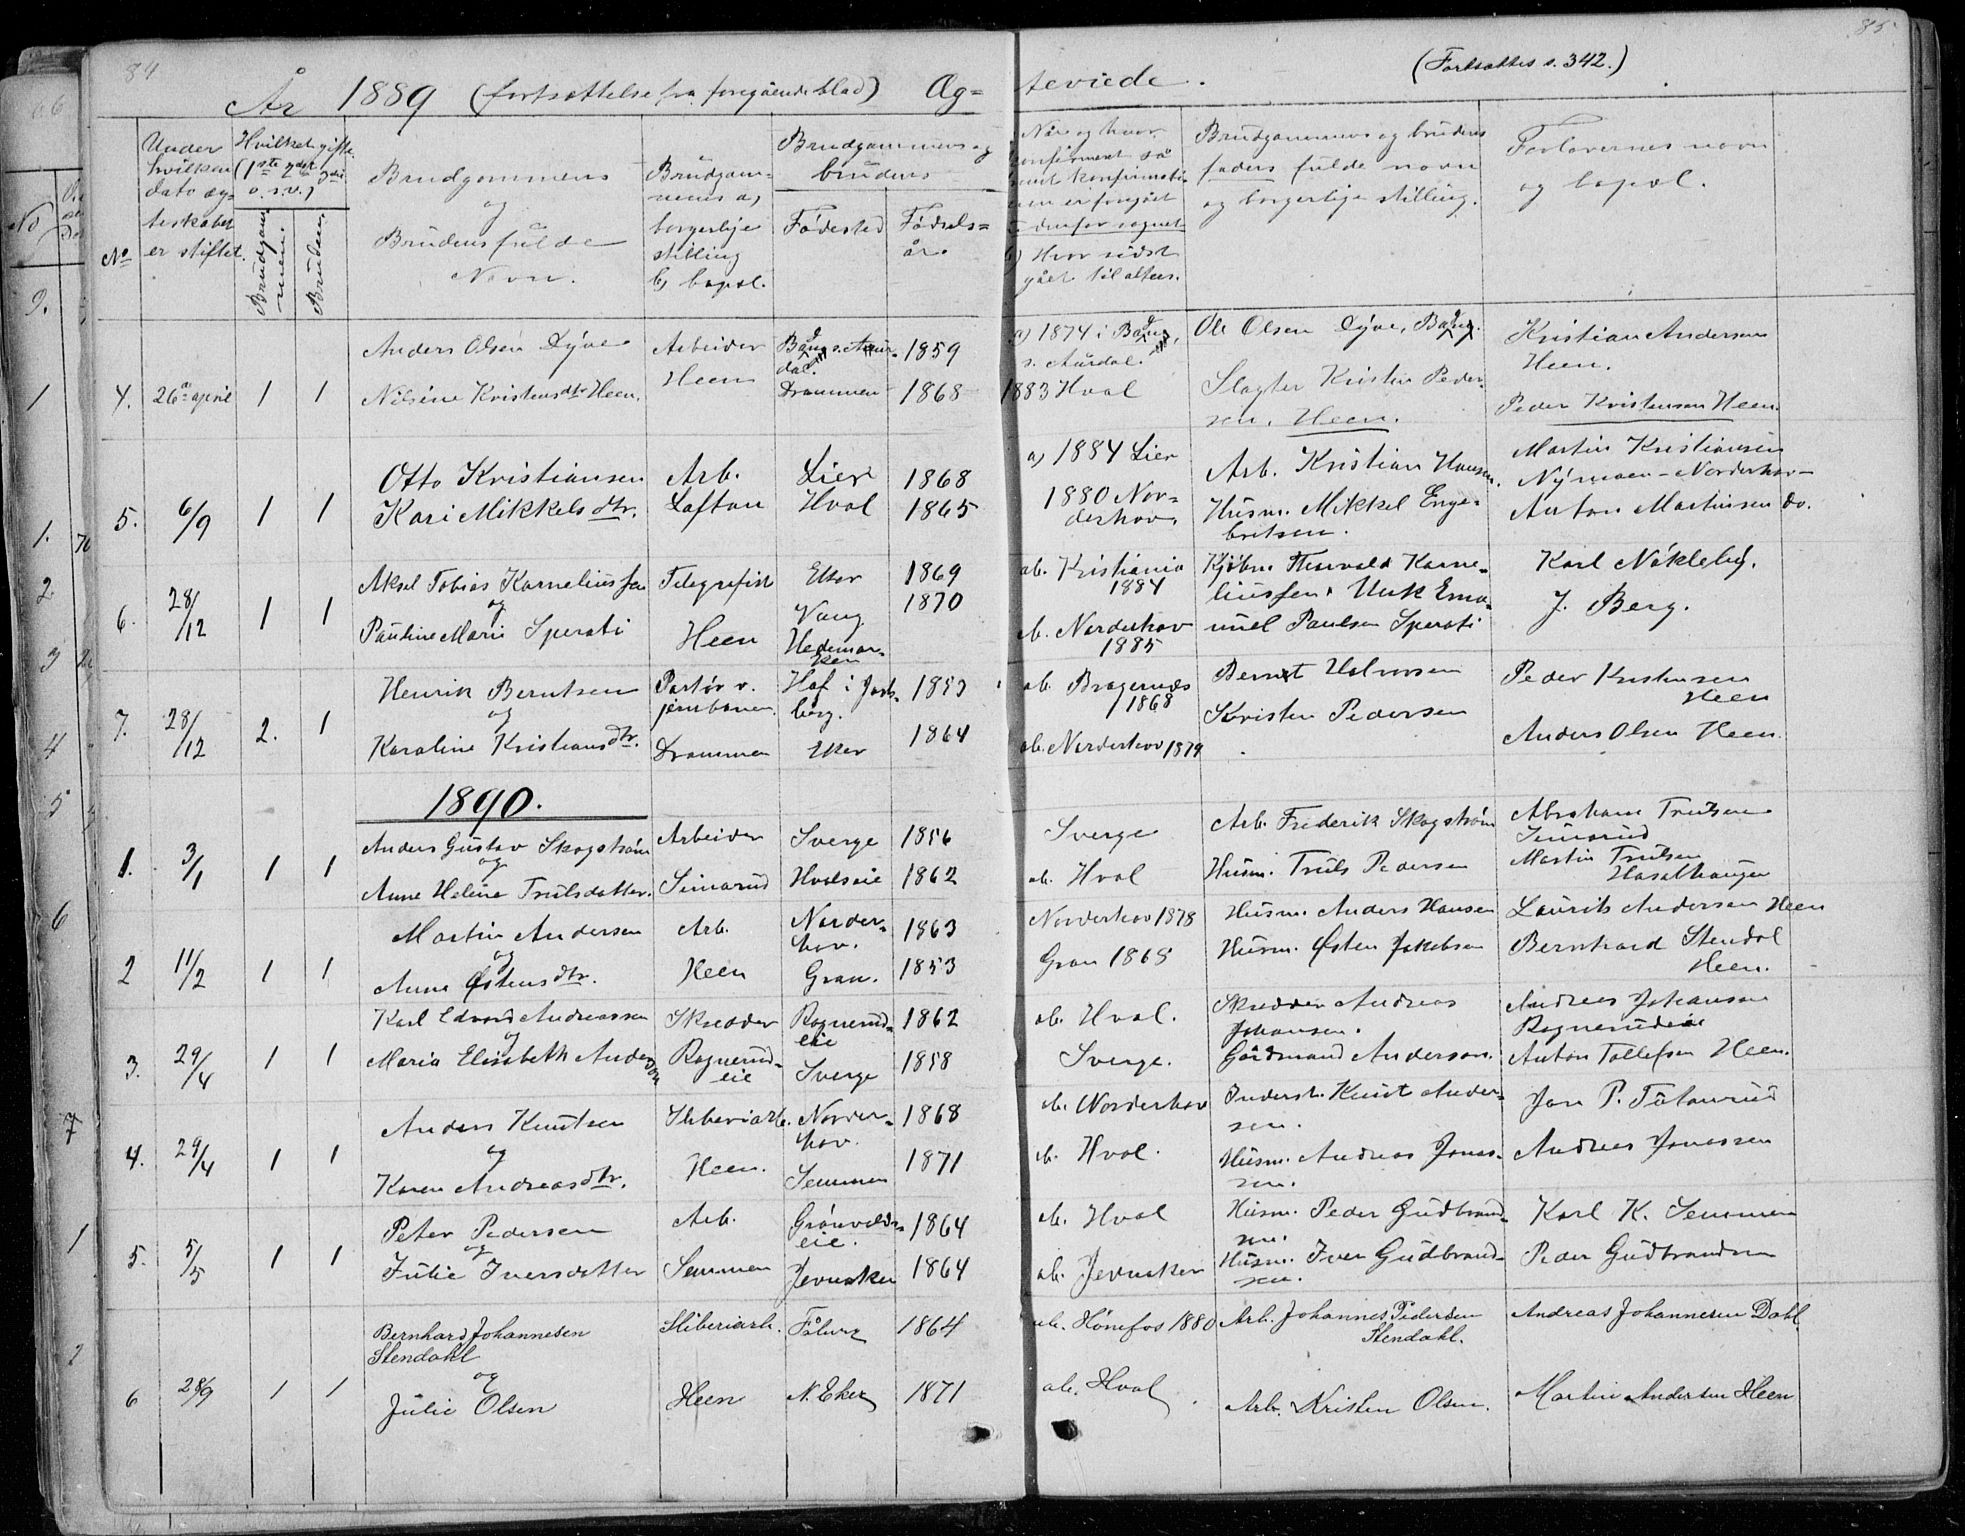 84
År 1889 (fortsættelse fra foregående blad) Æg-
teviede.
(Fortsættes s. 342.)
85.
No
Under hvilken dato ægteskabet er stiftet.
Hvilket gifte (1ste 2det 3die o.s.v.)
Brudgommen.
Bruden.
Brudgommens
og
Brudens fulde
Navn.
Brudgommens a,
borgerlige
stilling
b, bopæl.
Brudgommens og
brudens
Fødested
Fødsels=
år.
Når og hvor
konfirmeret så
b) Hvor sidst
gået til alters.
Brudgommens og brudens
faders fulde navn
og borgerlige stilling.
Forlovernes navn
og bopæl.
4. 26de april 1 1
Anders Olsen Dyve Arbeider 1859
a) 1874 i Bang, s. Aurdal. Ole Olsen Dyve, Bang. Kristian Andersen
Heen.
Nilsine Kristensdtr Heen. Heen Drammen 1868
1883 Hval Slagter Kristen Peder-
sen. Heen. Peder Kristensen Heen.
5. 6/9 1 1
Otto Kristiansen Arb. Lier 1868
a) 1884 Lier Arb. Kristian Hansen. Martin Kristiansen
Nymoen - Norderhov -
Kari Mikkelsdtr. Loftan Hval 1865
1880 Nor-
derhov. Husm. Mikkel Enge-
bretsen. Anton Martinsen do.
6. 28/12 1 1
Aksel Tobias Korneliussen Telegrafist Eker 1869
ab. Kristiania
1884 Kjøbm. Thorvald Korne-
liussen. Karl Nökleby.
og
Pauline Marie Sperati Heen Vang
Hedemar-
ken 1870
ab. Norderhov
1885 Emanuel Paulsen Sperati J. Berg.
7. 28/12 2. 1
Henrik Berntsen Portør v.
jernbanen Hof i Jarls-
berg. 1853
ab. Bragernes
1868 Bernt Halvorsen Peder Kristensen
Heen
og
Karoline Kristiansdtr. Drammen Eker 1864
ab. Norderhov 1879 Kristen Pedersen Anders Olsen Heen.
1890.
1. 3/1 1 1
Anders Gustav Skogstrøm Arbeider Sverge 1856
Sverge Arb. Frederik Skogstrøm Abraham Trulsen
Simarud
og
Anne Helene Trulsdatter. Simarud Hvalseie 1862
ab. Hval Husm. Truls Pedersen Martin Trulsen
Hasalhaugen
2 11/2 1 1
Martin Andersen Arb. Norder-
hov. 1863
Norderhov 1878 Husm. Anders Hansen Laurits Andersen Heen
og
Anne Østensdtr. Heen Gran. 1853
Gran 1868 Husm. Østen Jakobsen Bernhard Stendal
Heen.
3. 29/4 1 1
Karl Edvard Andreassen Skredder Rognerud-
eie 1862
ab. Hval. Skredder Andreas
Johansen. Andreas Johansen
Rognerudeie
og
Maria Elisabeth Anderson Rognerud-
eie Sverge 1858
Sverge. Gårdmand Anderson. Anton Tollefsen Heen.
4. 29/4 1 1
Anders Knutsen Sliberiarb. Norder-
hov. 1868
ab. Norderhov Inderst. Knut Ander-
sen. Jon P. Tolerud
og
Karen Andreasdtr. Heen. Semmen 1871
ab. Hval. Husm. Andreas Jonas-
sen. Andreas Jonassen
5. 5/5 1 1
Peter Pedersen Arb. Grønvolds-
eie. 1864
ab. Hval Husm. Peder Gudbrand-
sen. Karl K. Semmen
og
Julie Iversdatter Semmen Jevnaker 1864
ab. Jevnaker Husm. Iver Gudbrand-
sen. Peder Gudbrandsen
6 28/9 1 1
Bernhard Johannesen
Stendahl Sliberiarb. 1864
ab. Hønefos 1880 Arb. Johannes Pedersen
Stendahl. Andreas Johannesen Dahl.
og
Julie Olsen Heen N. Eker 1871
ab. Hval Arb. Kristen Olsen. Martin Andersen Heen